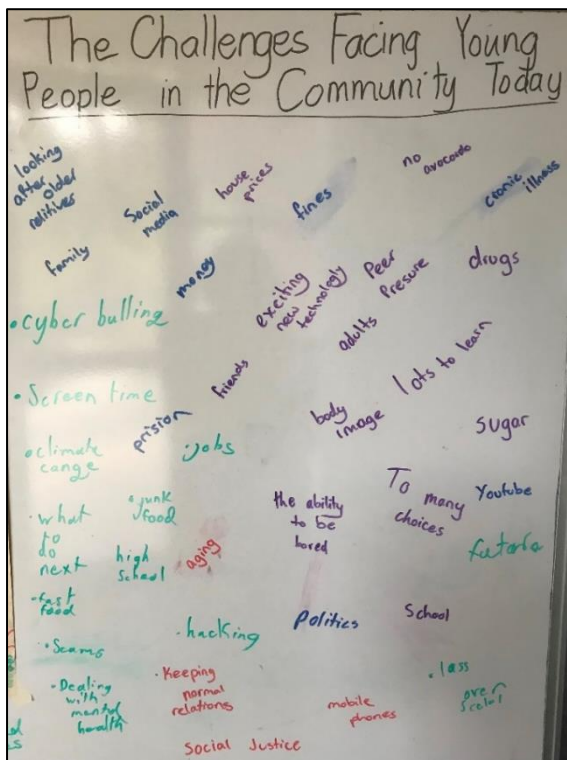 The Challenges Facing Young
People in the Community Today
looking
after
older
relitives
Social
media
house
prices
fines
no
avocardo
cronic
illness
family
money
exciting
new
technology
Peer
Presure
drugs
• cyber bulling
adults
friends
lots to learn
• Screen time
prision
body
image
sugar
• climate
cange
• jobs
• what
to
do
next
• junk
food
the ability
to be
bored
To many
choices
Youtube
high
school
aging
• fast
food
• hacking
Politics
School
• Scams
• Dealing
with
mental
health
• Keeping
normal
relations
mobile
phones
Social Justice